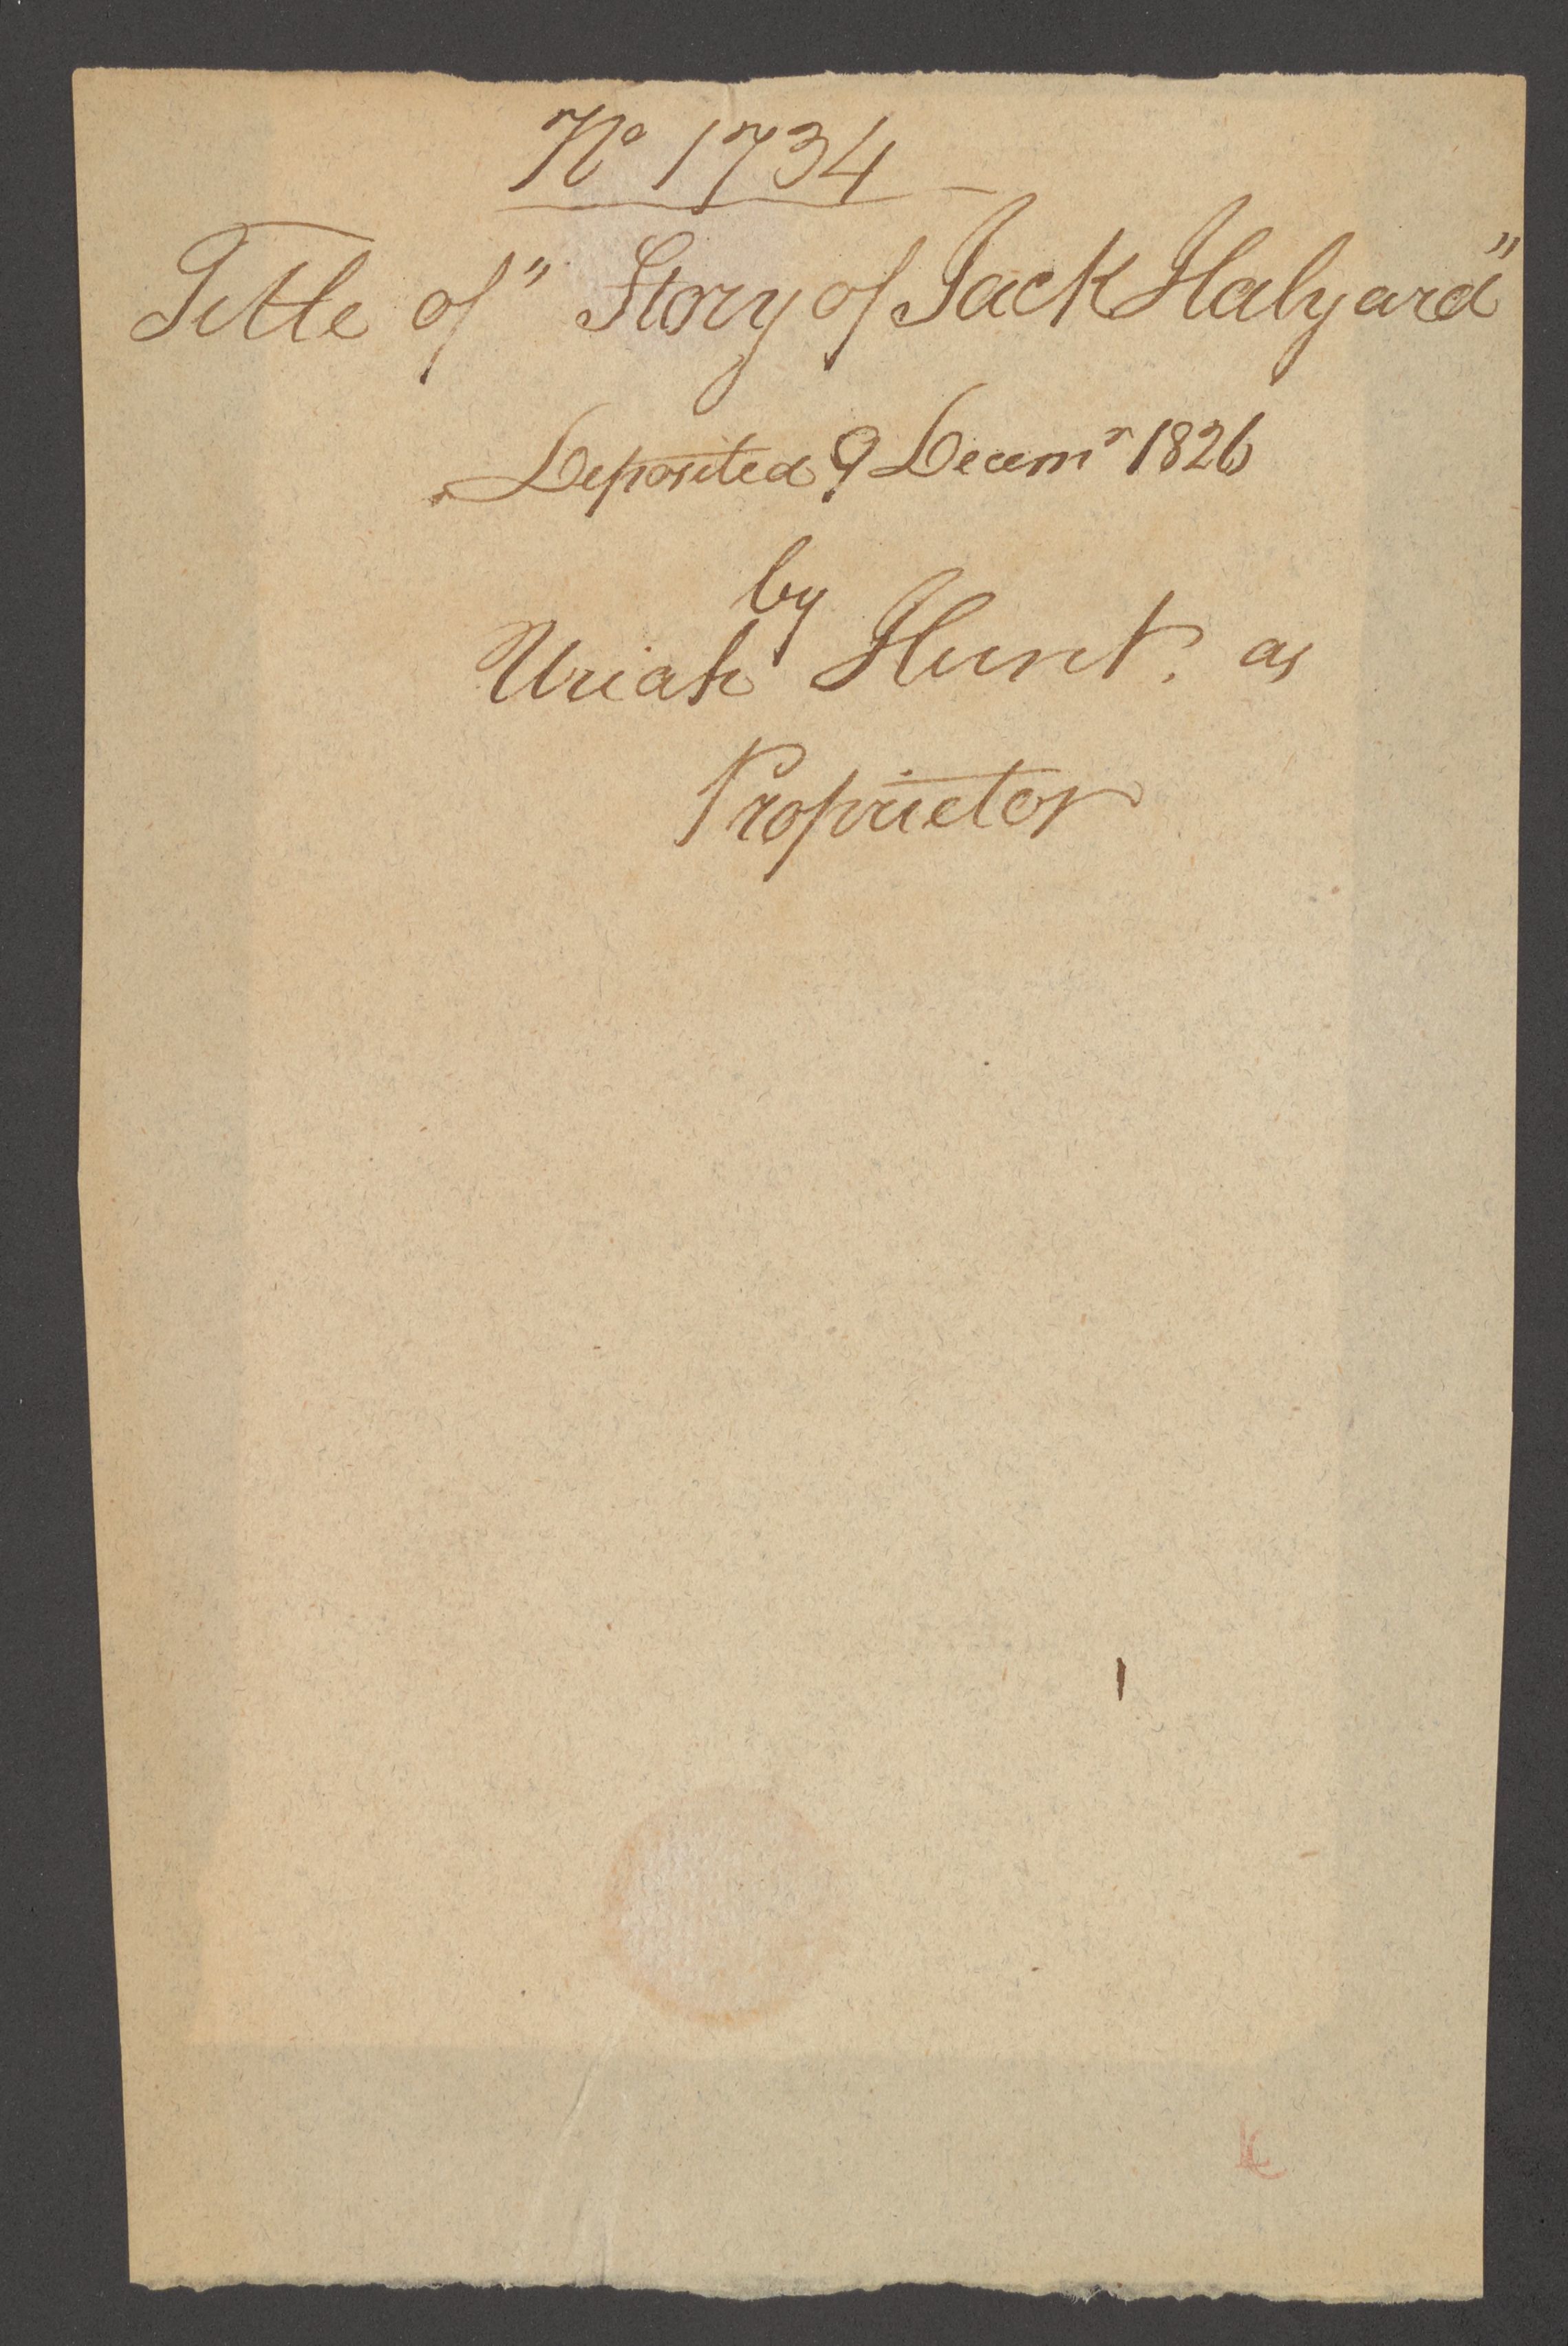 No 1734
Title of "Story of Jack Halyard"
Deposited 9 Decemr 1826
by
Uriah Hunt. as
Proprietor